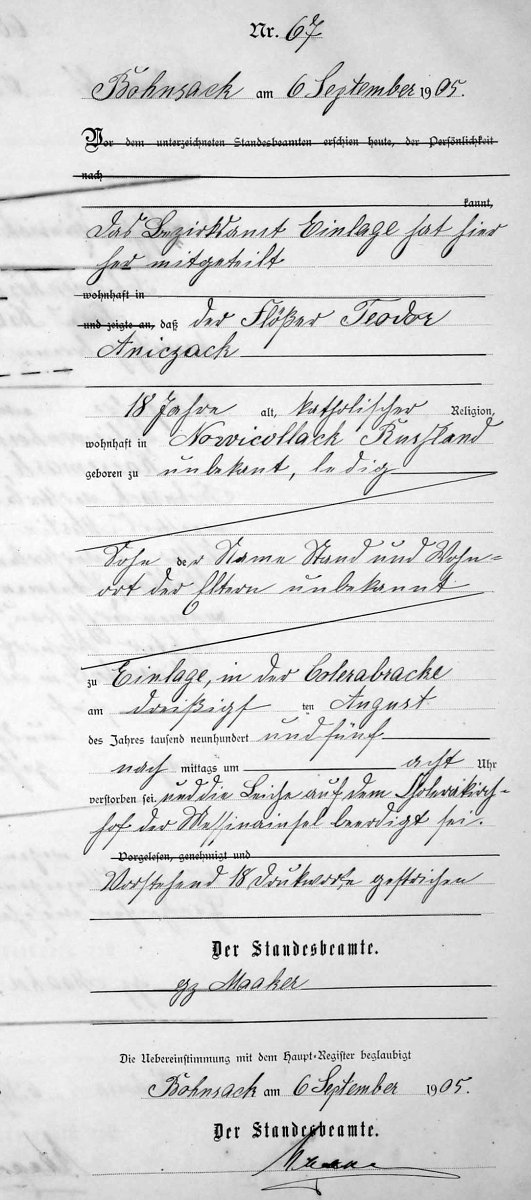 Nr. 67
Bohnsack am 6 September 1905.
Vor dem unterzeichneten Standesbeamten erschien heute, der Persönlichkeit
nach
kannt,
das Bezirksamt Einlage hat hier
her mitgeteilt
wohnhaft in
und zeigte an, daß der Flößer Teodor
Aniczack
18 Jahre alt, katholischer Religion,
wohnhaft in Nowicollack Rußland
geboren zu unbekant, ledig
Sohn der Name Stand und Wohn-
ort der Eltern unbekannt
zu Einlage, in der Colerabracke
am dreißigst ten August
des Jahres tausend neunhundert und fünf
nach mittags um acht Uhr
verstorben sei und die Leiche auf dem Cholerakirch-
hof der Messinainsel beerdigt sei.
Vorgelesen, genehmigt und
Vorstehend 18 Drukworte gestrichen
Der Standesbeamte.
gz Maaker
Die Uebereinstimmung mit dem Haupt-Register beglaubigt
Bohnsack am 6 September 1905.
Der Standesbeamte.